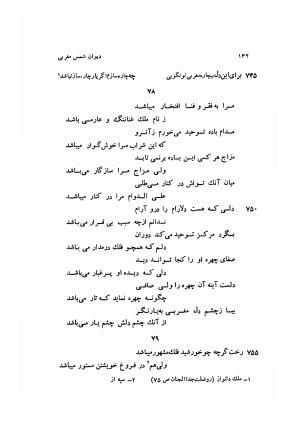 ۱۳۲ دیوان شمس مغربی
۷۴۵ برای این دل بیچاره مغربی تو نگویی چه چاره سازم اگر یار چاره ساز نباشد؟
۷۸
مرا به فقر و فنا افتخار میباشد
ز نام ملك غنا ننگ و عار می باشد
مدام باده توحید می خورم ز آنرو
که این شراب مرا خوش گوار میباشد
مزاج هر کسی این باده برنمی تابد
ولی مزاج مرا سازگار می باشد
میان آنك تواش در کنار می طلبی
علی الدوام مرا در کنار میباشد
۷۵۰ دلی که هست دلارام را درو آرام
ندانم ازچه سبب بی قرار می باشد
بگرد مرکز توحید می کند دوران
دلم که همچو فلك درمدار می باشد
صفای چهره او را کجا تواند دید
دلی که دیده او پرغبار می باشد
دلست آینه آن چهره را ولی صافی
چگونه چهره نماید که تار می باشد
بیا ز چشم دل مغربی به یار نگر
از آنك چشم دلش چشم یار می باشد
۷۹
۷۵۵ رخت هرگز چه چو خورشید فلك مشهور میباشد
ولی هم۲ در فروغ خویشتن مستور میباشد
۱ـ ملك دلنواز (روضات جنا الجنان ص ۷۵) ۲ـ سیه از